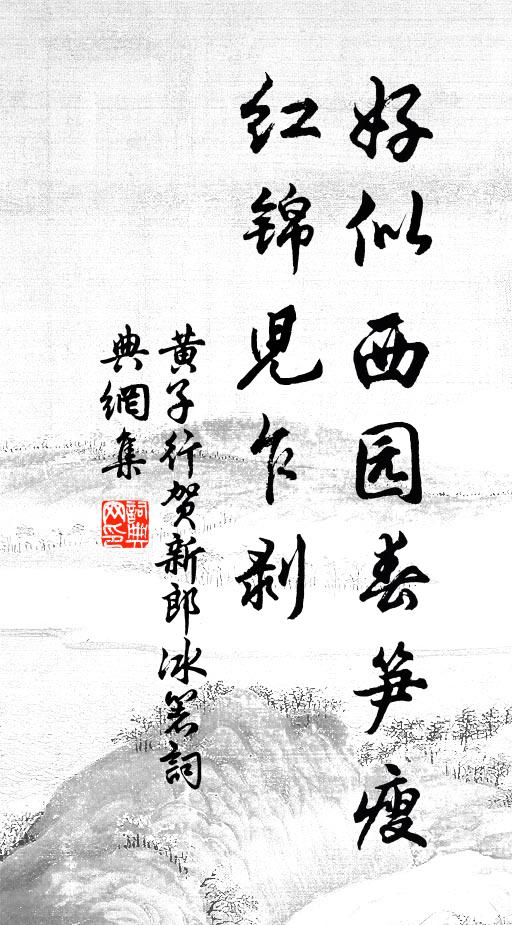 好似西园春笋瘦
红锦児乍剥
黄子行贺新郎冰箸詞
典網集
詞典网印